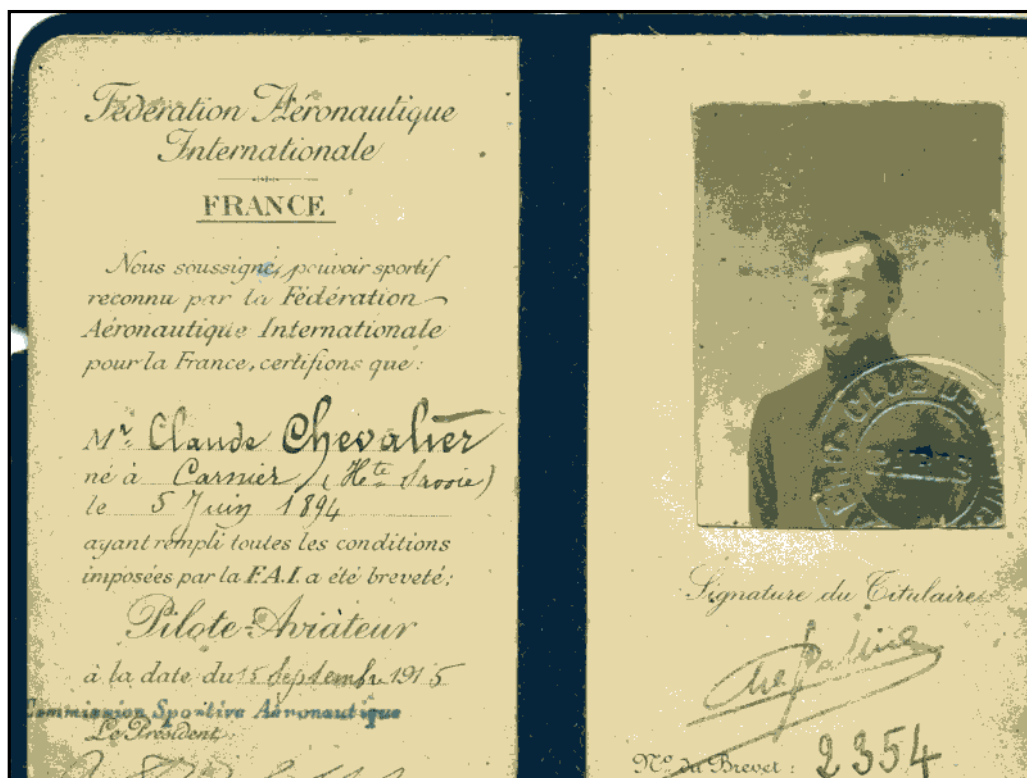 Fédération Aéronautique
Internationale
FRANCE
Nous soussigné, pouvoir sportif
reconnu par la Fédération
Aéronautique Internationale
pour la France, certifions que:
Mr. Claude Chevalier
né à Carnier (Hte Savoie)
le 5 Juin 1894
ayant rempli toutes les conditions
imposées par la F.A.I. a été breveté:
Pilote-Aviateur
à la date du 15 Septembre 1915
Commission Sportive Aéronautique
Le Président:
CLUB DE
Signature du Titulaire
No du Brevet: 2354